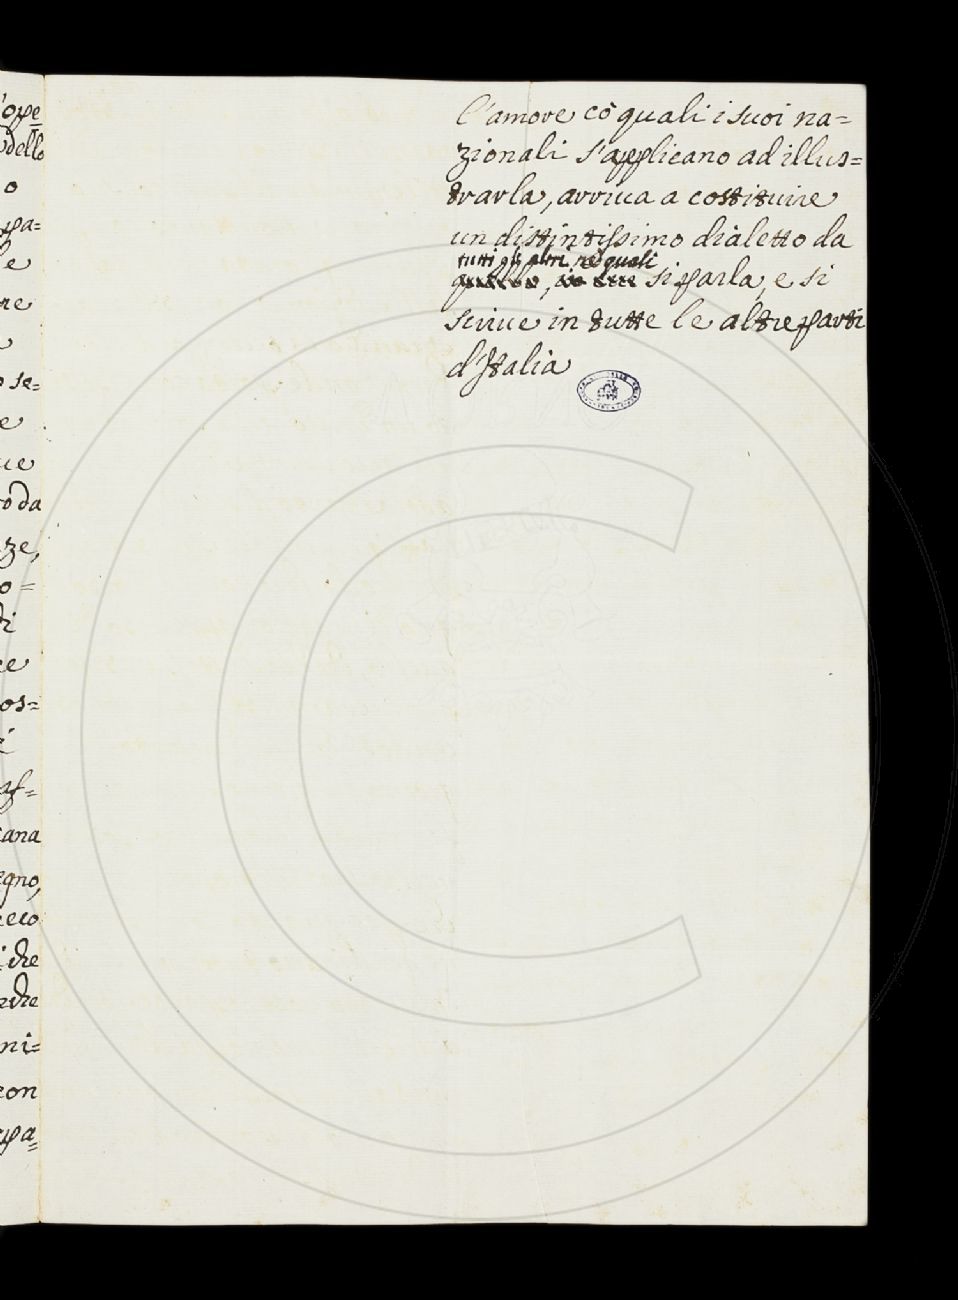 'ope
dello
o
pa=
le
re
o se=
e
ue
to da
ze,
o=
di
ce
os=
af=
cana
egno,
eco
che
rche
ni=
con
pa=
l'amore cò quali i suoi na=
zionali s'applicano ad illus=
trarla, arriva a costituire
un distintissimo dialetto da
tutti gli altri nè quali
si parla, e si
scrive in tutte le altre parti
d'Italia